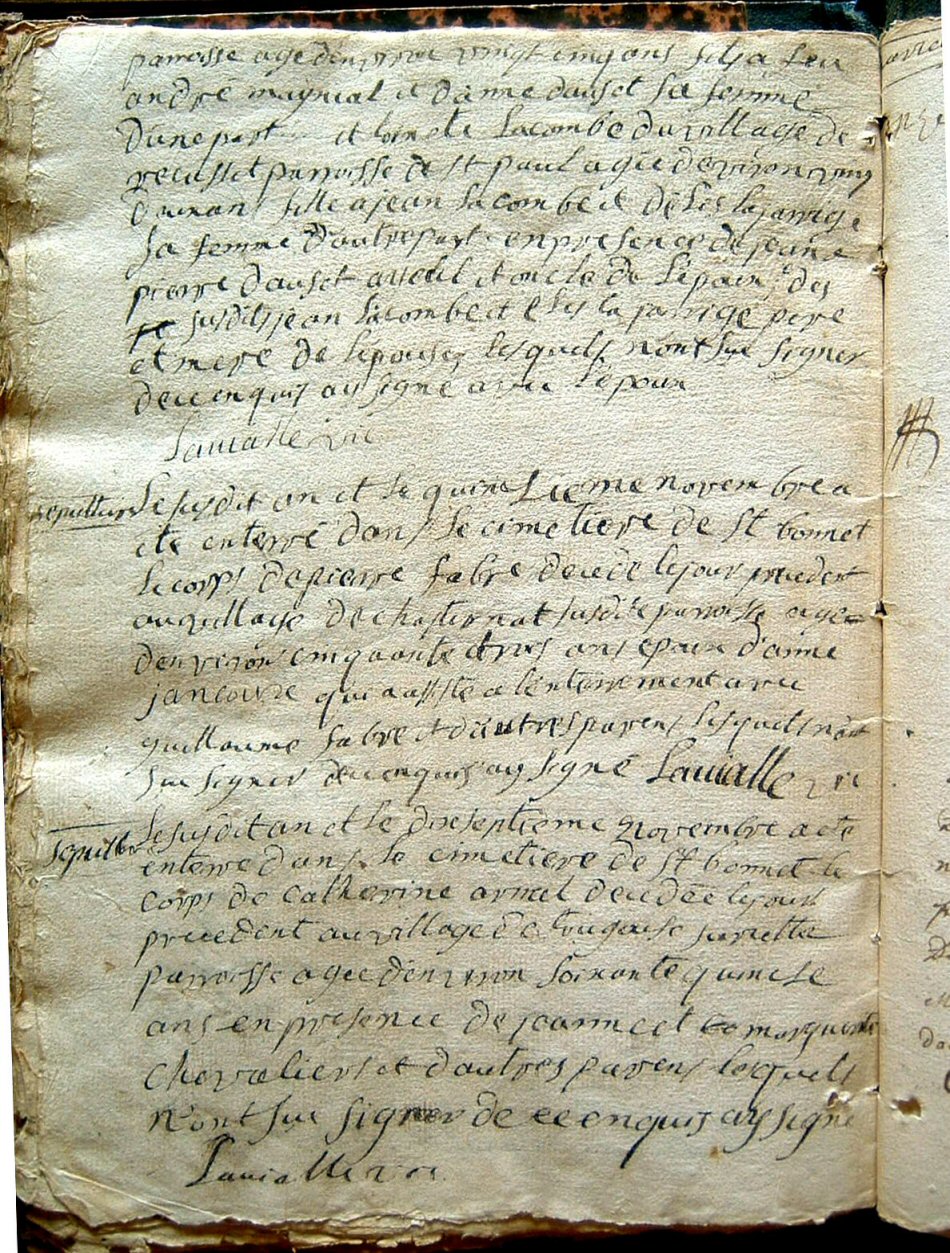 parroisse age d'environ vingt cinq ans fils a feu
andré magnial et d'anne dauset sa femme
d'une part et toinete Lacombe du village de
parroisse de st paul agée d'environ vingt
deux ans fille a jean Lacombe et de la jarrige
sa femme d'autre part en presence de jeane
pierre dauset et oncle de l'epoux des
susdits jean Lacombe et la jarrige pere
et mere de l'epouse lesquels n'ont sue signer
de ce enquis ay signé avec l'epoux
Lavialle vic
sepulture Le susdit an et le quinsieme novembre a
ete enterré dans le cimetiere de st bonnet
le corps de pierre fabre decede le jour precedent
au village de chasternat susdite parroisse age
d'environ cinquante et trois ans epoux d'anne
jancoure qui a assiste a l'enterrement avec
guillaume fabre et d'autres parens lesquels n'ont
sue signer de ce enquis ay signé Lavialle vic
sepulture Le susdit an et le diseptieme novembre a ete
enterre dans le cimetiere de st bonnet le
corps de catherine armel decedée le jour
precedent au village de susditte
parroisse agée d'environ soixante quinse
ans en presence de jeanne et marguerite
chevaliers et d'autres parens lesquels
n'ont sue signer de ce enquis ay signé
Lavialle vic